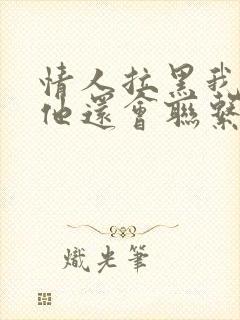 情人拉黑我
他還會聯繫
熾光筆